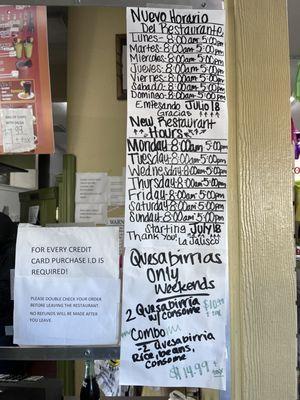 Nuevo Horario
Del Restaurante
Lunes- 8:00am-5:00pm
Martes- 8:00am-5:00pm
Miercoles- 8:00am-5:00pm
Jueves- 8:00am-5:00pm
Viernes- 8:00am-5:00pm
Sabado- 8:00am-5:00pm
Domingo- 8:00am-5:00pm
Empesando JULIO 18
Gracias
New Restaurant
Hours
Monday-8:00am-5:00pm
Tuesday-8:00am-5:00pm
Wednesday-8:00am-5:00pm
Thursday-8:00am-5:00pm
Friday-8:00am-5:00pm
Saturday-8:00am-5:00pm
Sunday-8:00am-5:00pm
Starting JULY 18
Thank You La Jalisco
Quesabirrias
Only
Weekends
2 Quesabirria $10.99
w/ Consome + tax
Combo
-2 Quesabirria
Rice, beans,
Consome
$14.99 + tax
FOR EVERY CREDIT
CARD PURCHASE I.D IS
REQUIRED!
PLEASE DOUBLE CHECK YOUR ORDER
BEFORE LEAVING THE RESTAURANT.
NO REFUNDS WILL BE MADE AFTER
YOU LEAVE.